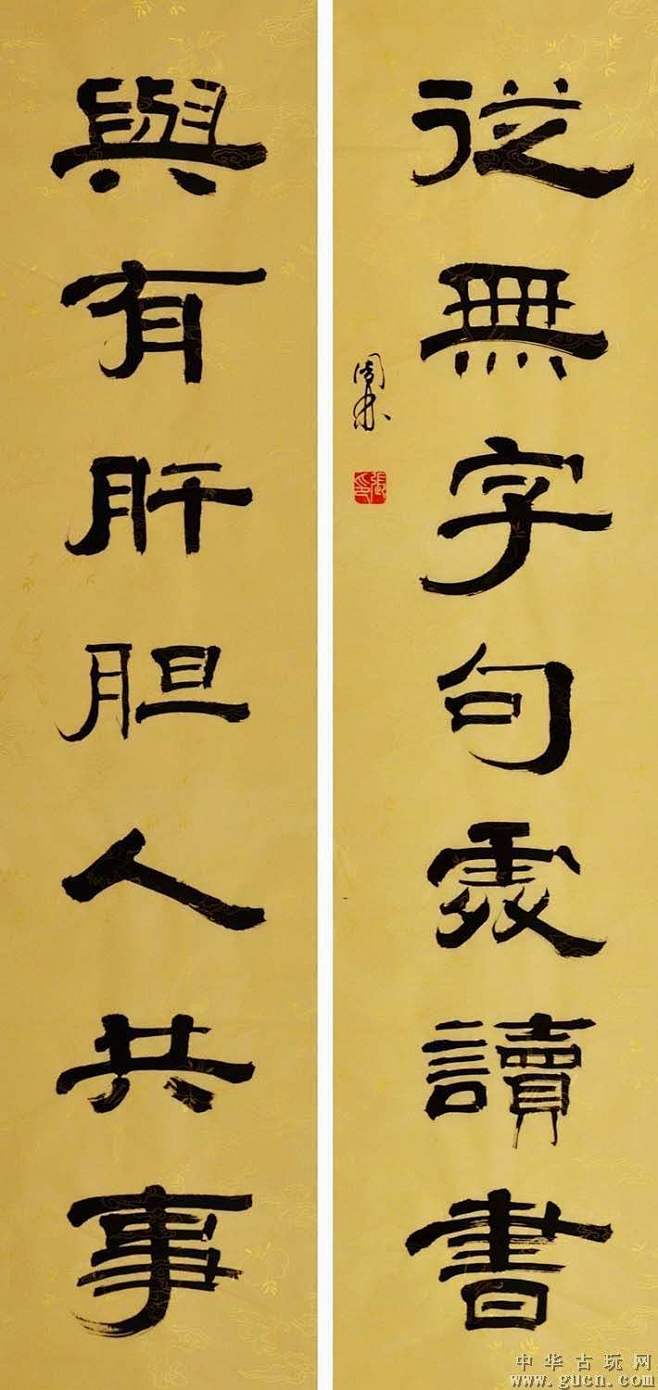 從無字句處讀書
與有肝胆人共事
中华古玩网
www.gucn.com